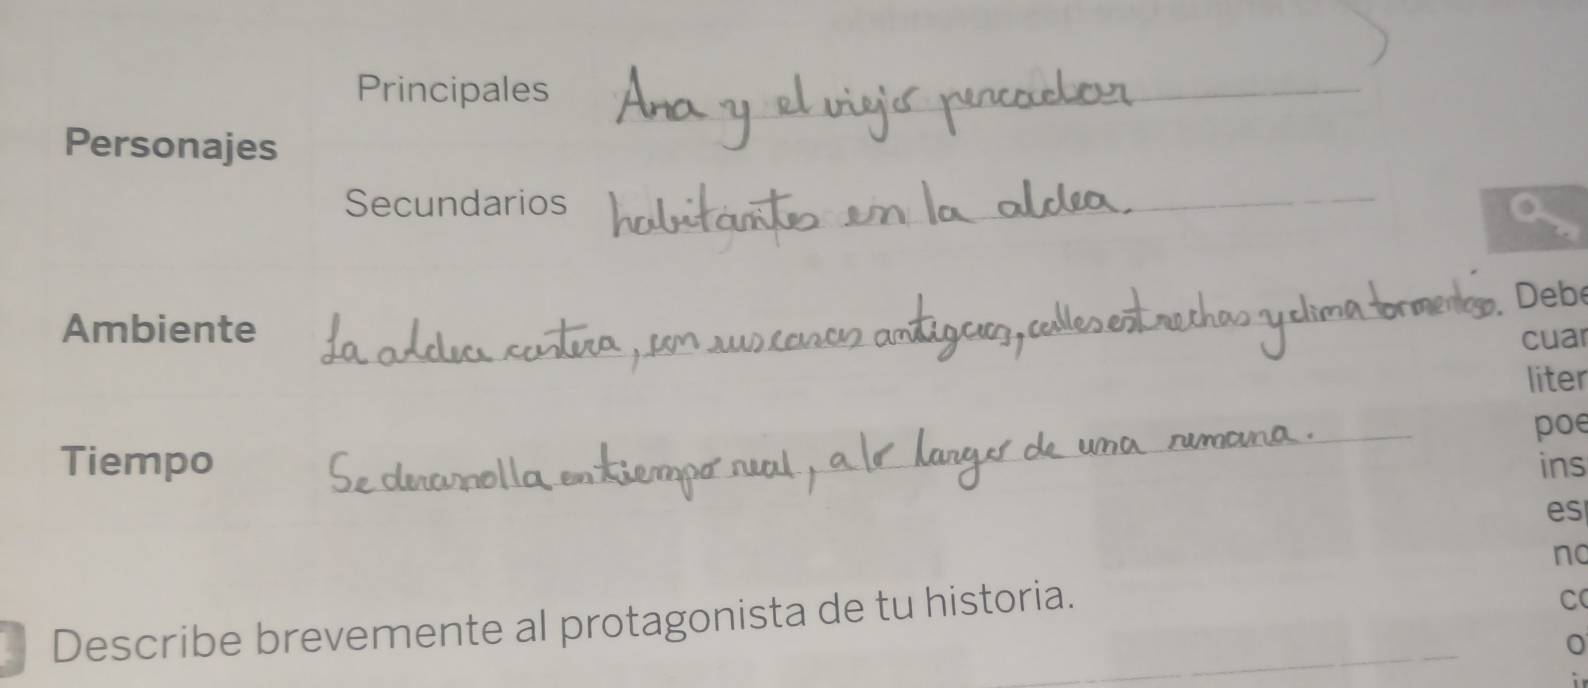 Principales Ana y el viejo pescador
Personajes
Secundarios habitantes en la aldea.
Ambiente La aldea costera, con sus casas antiguas, calles estrechas y clima tormentoso.
Tiempo Se desarrolla en tiempo real, a lo largo de una semana.
Describe brevemente al protagonista de tu historia.
Debe
cuan
liter
poe
ins
es
no
co
o